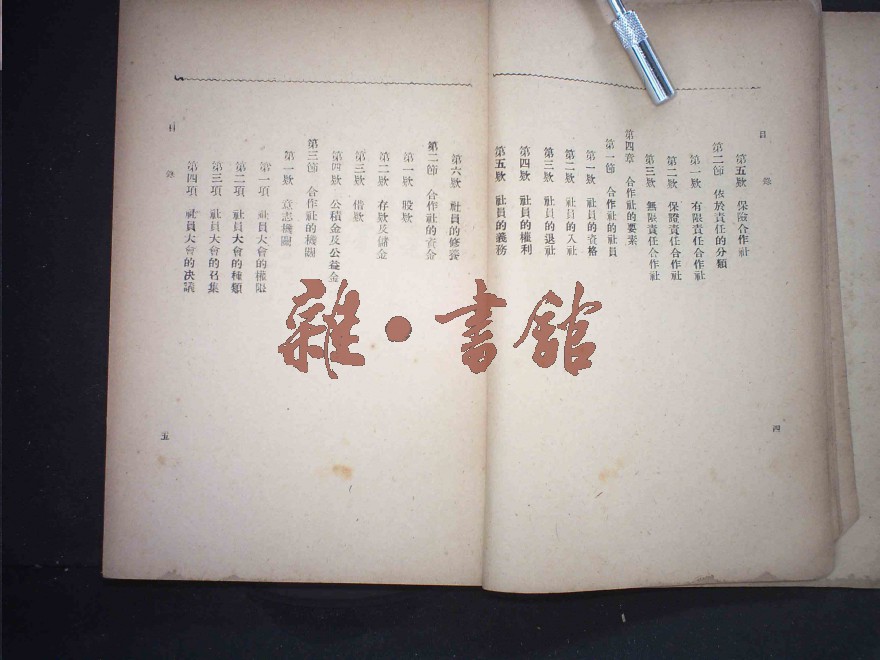 目錄
第五欵 保險合作社
第二節 依於責任的分類
第一欵 有限責任合作社
第二欵 保證責任合作社
第三欵 無限責任合作社
第四章 合作社的要素
第一節 合作社的社員
第一欵 社員的資格
第二欵 社員的入社
第三欵 社員的退社
第四欵 社員的權利
第五欵 社員的義務
四
第六欵 社員的修養
第二節 合作社的資金
第一欵 股欵
第二欵 存欵及儲金
第三欵 借欵
第四欵 公積金及公益金
第三節 合作社的機關
第一欵 意志機關
第一項 社員大會的權限
第二項 社員大會的種類
第三項 社員大會的召集
第四項 社員大會的决議
目錄
五
雜·書館